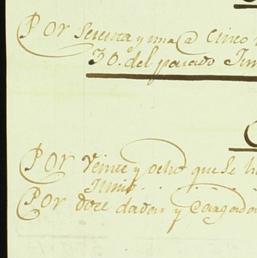 Por setenta y una a cinco
30. del pasado Jun
Por veinte y ocho que se h
Junio.
Por doce dadas y Cargado